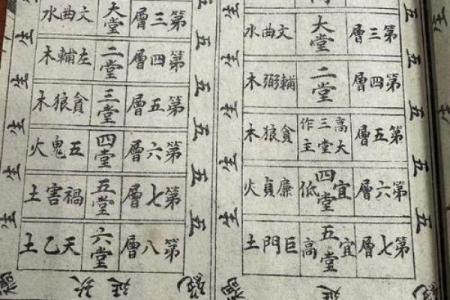 第三層 大堂 文曲水
五 生
第四層 二堂 輔弼木
五 生
第五層 高大三堂作主 貪狼木
五 生
第六層 宜四堂低 廉貞火
五 生
第七層 宜五堂高 巨門土
第三層 大堂 文曲水
五 生
第四層 二堂 左輔木
五 生
第五層 三堂 貪狼木
五 生
第六層 四堂 五鬼火
五 生
第七層 五堂 禍害土
五 生
第八層 六堂 天乙土